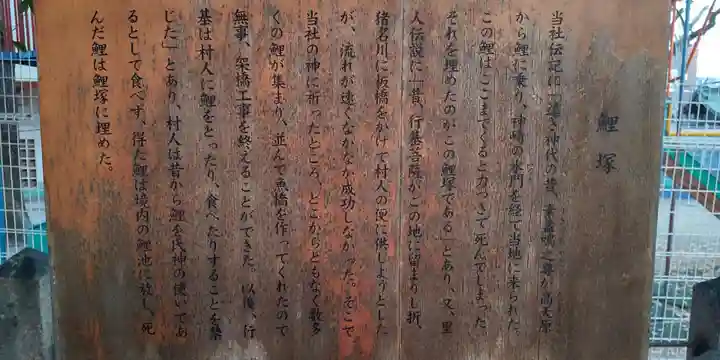 鯉塚
当社伝記に「遠き神代の昔、素盞嗚之尊が高天原
から鯉に乗り、神崎の水門を経て当地に来られた。
この鯉はここまでくると力つきて死んでしまった
それを埋めたのがこの鯉塚である」とあり、又、里
人伝説に「昔、行基菩薩がこの地に留まりし折、
猪名川に板橋をかけて村人の便に供しようとした
が、流れが速くなかなか成功しなかった。そこで
当社の神に祈ったところ、どこからともなく数多
くの鯉が集まり、並んで魚橋を作ってくれたので
無事、架橋工事を終えることができた。以後、行
基は村人に鯉をとったり、食べたりすることを禁
じた」とあり、村人は昔から鯉を氏神の使いであ
るとして食べず、得た鯉は境内の鯉池に放し、死
んだ鯉は鯉塚に埋めた。